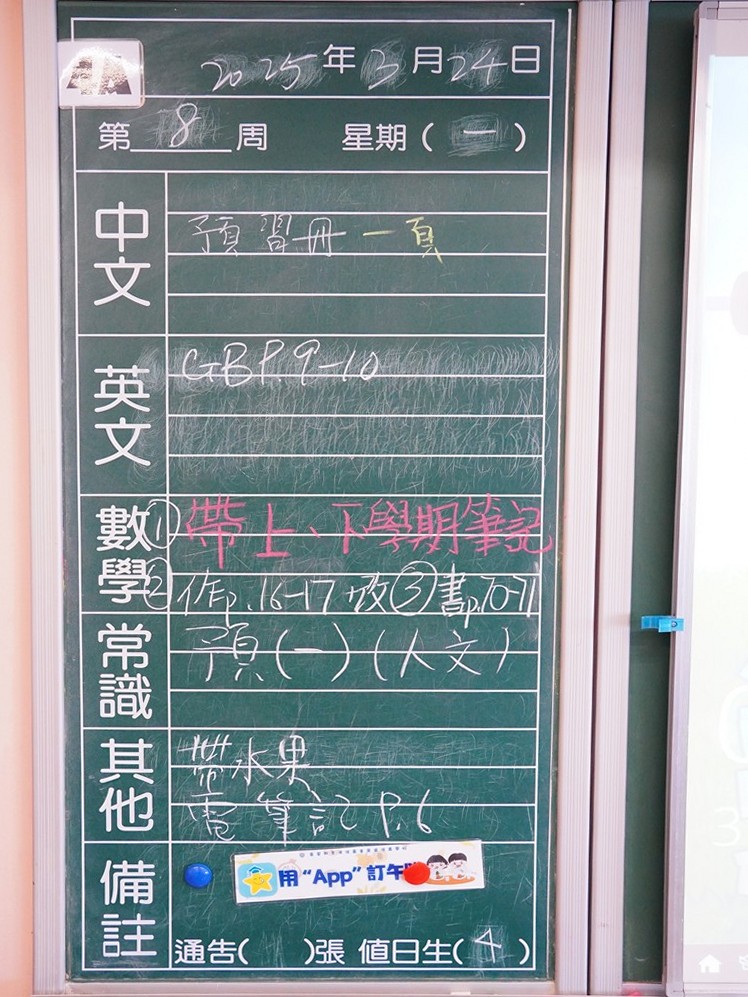 2025年3月24日
第8周 星期(一)
中文
預習冊一頁
英文
GB P.9-10
數學
① 帶上、下學期筆記
② 作p.16-17 改 ③ 書p.70-71
常識
預(一)(人文)
其他
帶水果
電筆記 P.6
備註
用"App"訂午
通告( )張 值日生(4)